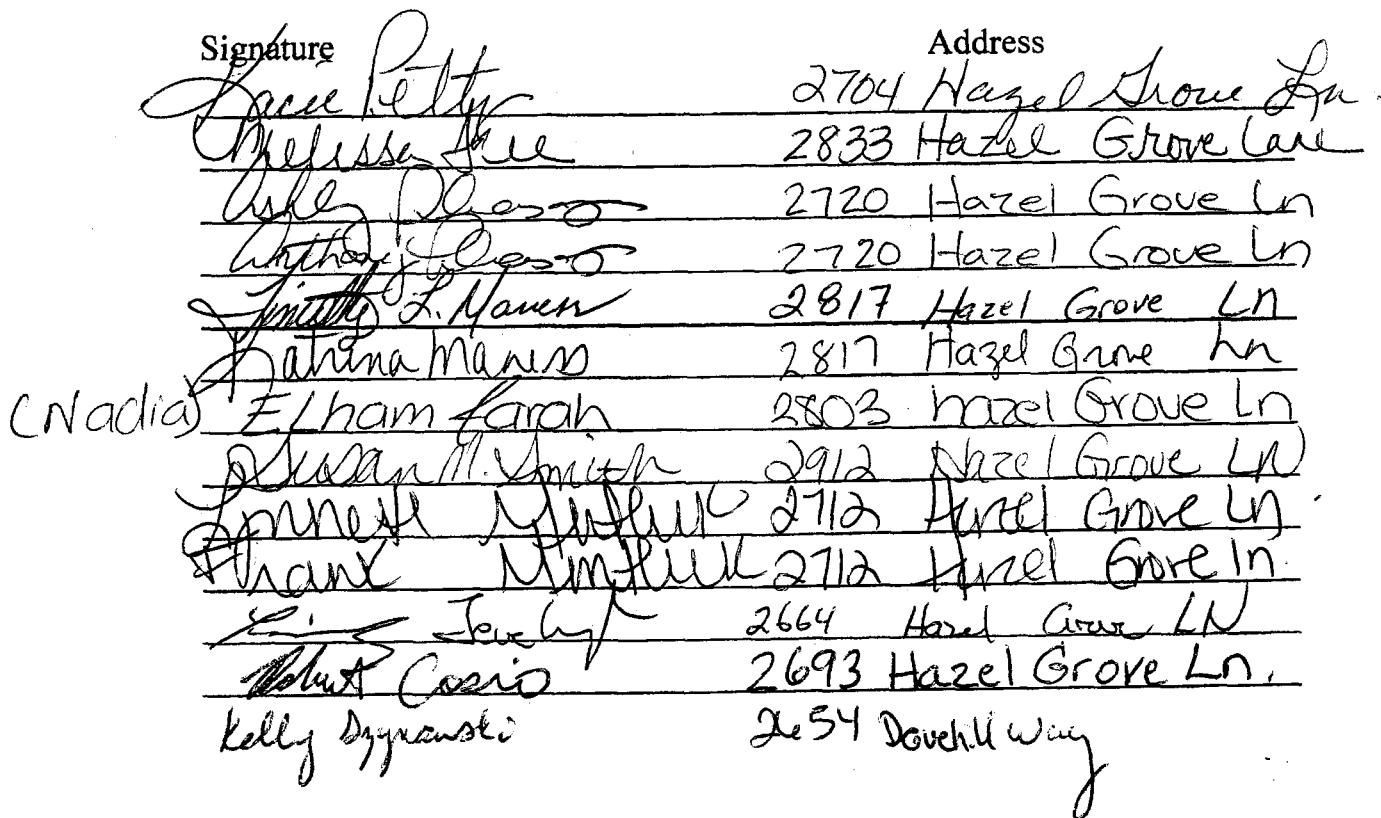 Signature Address
Petty 2704 Hazel Grove Ln.
Melissa 2833 Hazel Grove Lane
Ashley 2720 Hazel Grove Ln
Anthony 2720 Hazel Grove Ln
Timothy L. Maness 2817 Hazel Grove Ln
Katrina Maness 2817 Hazel Grove Ln
(Nadia) Elham farah 2803 hazel Grove Ln
Susan M. Smith 2912 Hazel Grove LN
2712 Hazel Grove Ln.
2712 Hazel Grove ln.
2664 Hazel Grove LN
Robert Cosio 2693 Hazel Grove Ln.
Kelly 2654 Dovehill Way